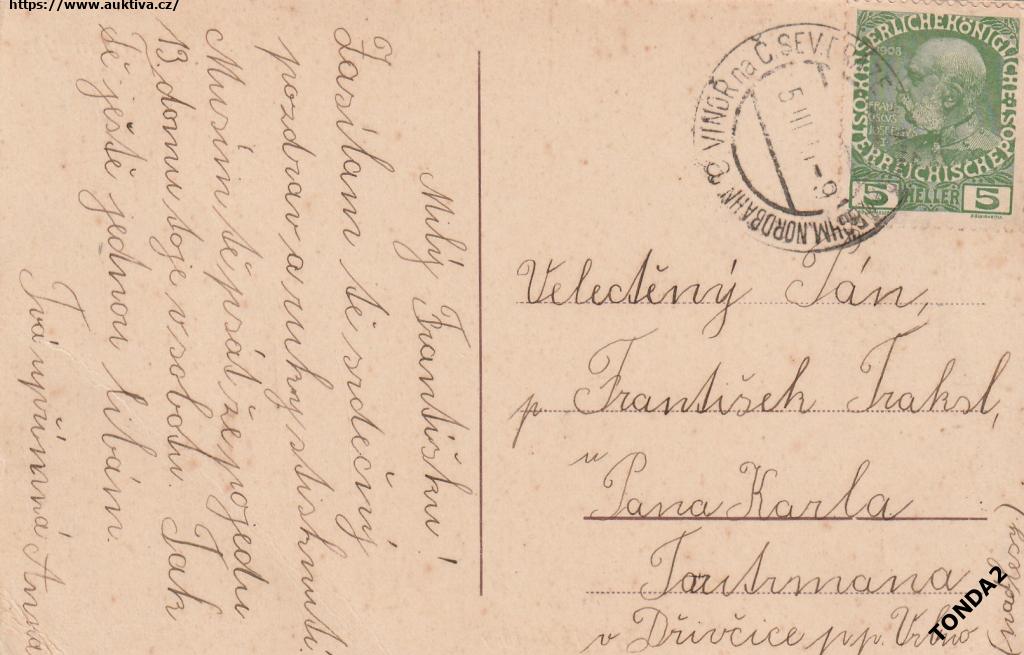 https://www.auktiva.cz/
Milý Františku!
Zasílam ti srdečný
pozdrav a ruky stisknutí.
Musím tě psát že pojedu
13. domu to je v sobotu. Tak
tě ještě jednou libám.
Tvá upřímná Anna
VINOŘ na Č. SEV.
BÖHM. NORDBAHN
KAISERLICHE KÖNIGLICHE ÖSTERREICHISCHE POST
1908
5 HELLER 5
Velectěný Pán,
p František Traksl,
u
Pana Karla
Tautrmana
v Dřivčice p. p. Vrbno
(nadlesý)
TONDA2